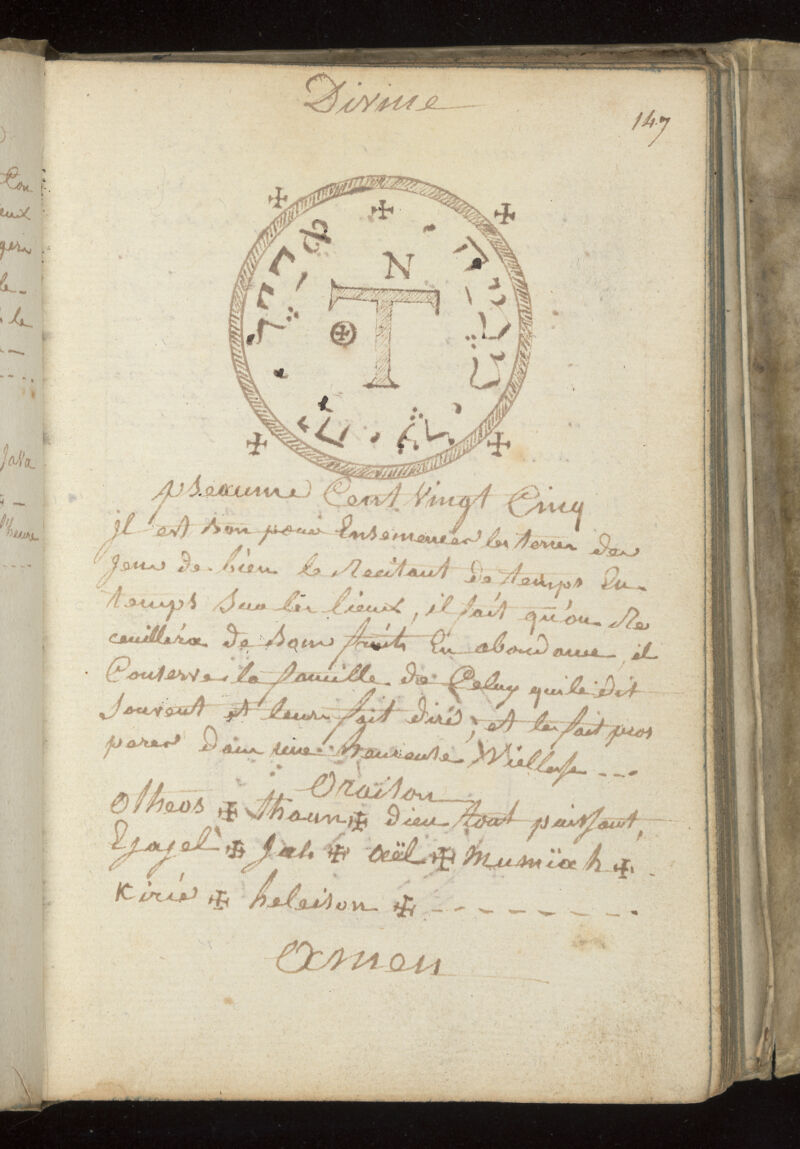 Divine
147
N
T
pseaume Cent Vingt Cinq
jl est bon pour Ensemencer les terres des
gens de bien le Recitant de temps En
temps sur les lieux, il fait qu'on Re
ceuillera de bons fruits En abondance, il
Conserve la famille de Celuy qui le dit
souvent et leurs fait dire, et les fait pros
perer dans une heureuse Viellesse ---
Oraison
Otheos ✠ thaun ✠ dieu tout puissant,
Ejajel ✠ Jah ✠ aël ✠ Mumïah ✠
Kirié ✠ heleison ✠ - - - - - - -
Amen
Con
eux
le
Java
l'heure